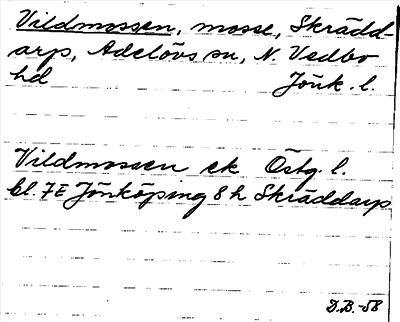 Vildmossen, mosse, Skrädd-
arp, Adelövs sn, N. Vedbo
hd Jönk. l.
Vildmossen ek Östg. l.
bl. 7E Jönköping 8 h Skräddarp
D.B. -58